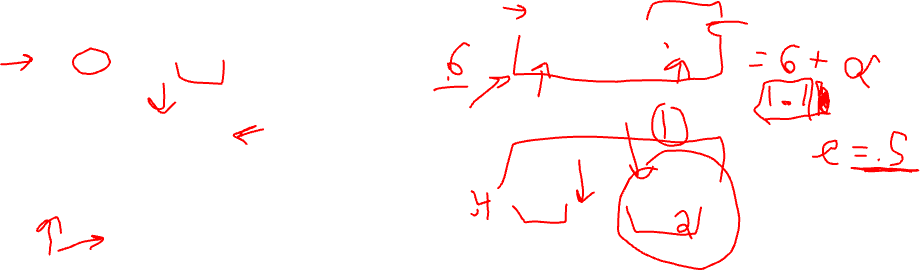 .6 = 6 + α
1 - 1
1
e = .5
.4 2